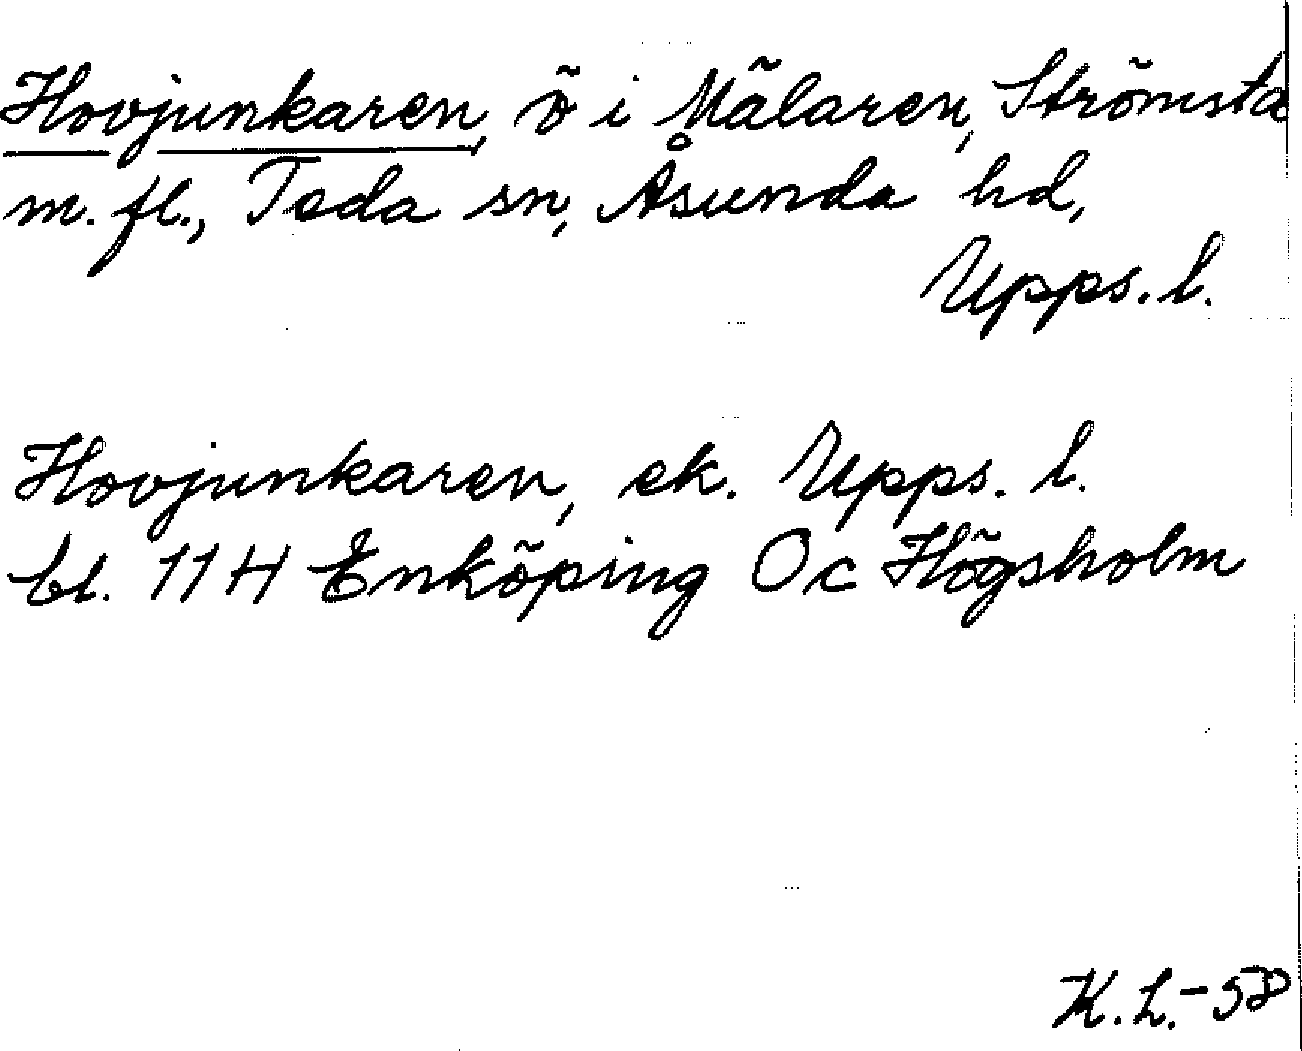 Hovjunkaren, ö i Mälaren, Strömsta
m. fl., Teda sn, Åsunda hd,
Upps. l.
Hovjunkaren, ek. Upps. l.
bl. 11 H Enköping Oc Högsholm
K. L. -58